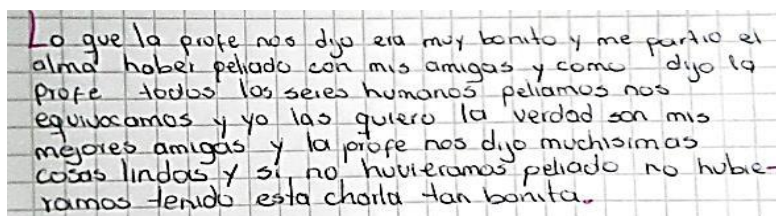 Lo que la profe nos dijo era muy bonito y me partio el
alma haber peliado con mis amigas y como dijo la
profe todos los seres humanos peliamos nos
equivocamos y yo las quiero la verdad son mis
mejores amigas y la profe nos dijo muchisimas
cosas lindas y si no huvieramos peliado no hubie-
ramos tenido esta charla tan bonita.